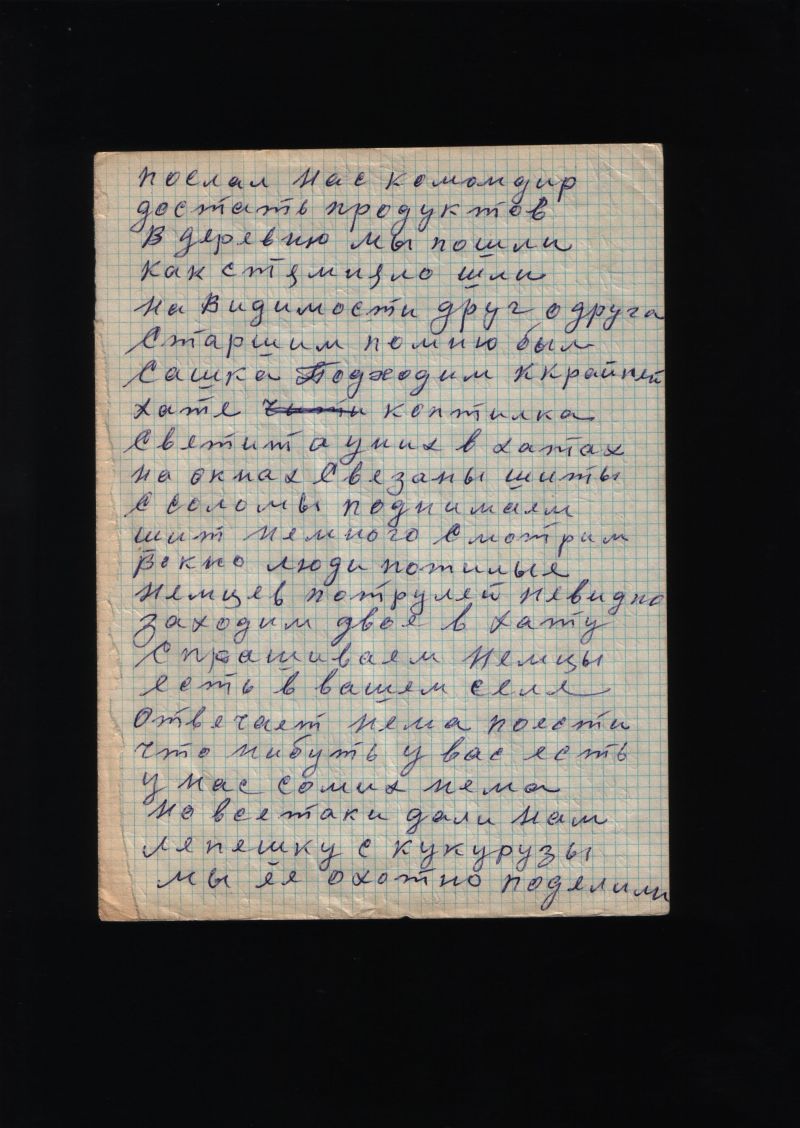 послал нас командир
достать продуктов
В деревню мы пошли
как стемнело шли
на Видимости друг о друга
Старшим помню был
Сашка Подходим ккрайней
хате коптилка
Светит а уних в хатах
на окнах Связаны шиты
с соломы поднимаем
шит немного Смотрим
Вокно люди пожилые
Немцев потрулей Невидно
заходим двое в хату
Спрашиваем Немцы
есть в вашем селе
Отвечает нема поести
что нибуть у вас есть
у нас сомих нема
Но всетаки дали нам
лепешку с кукурузы
мы её охотно поделили